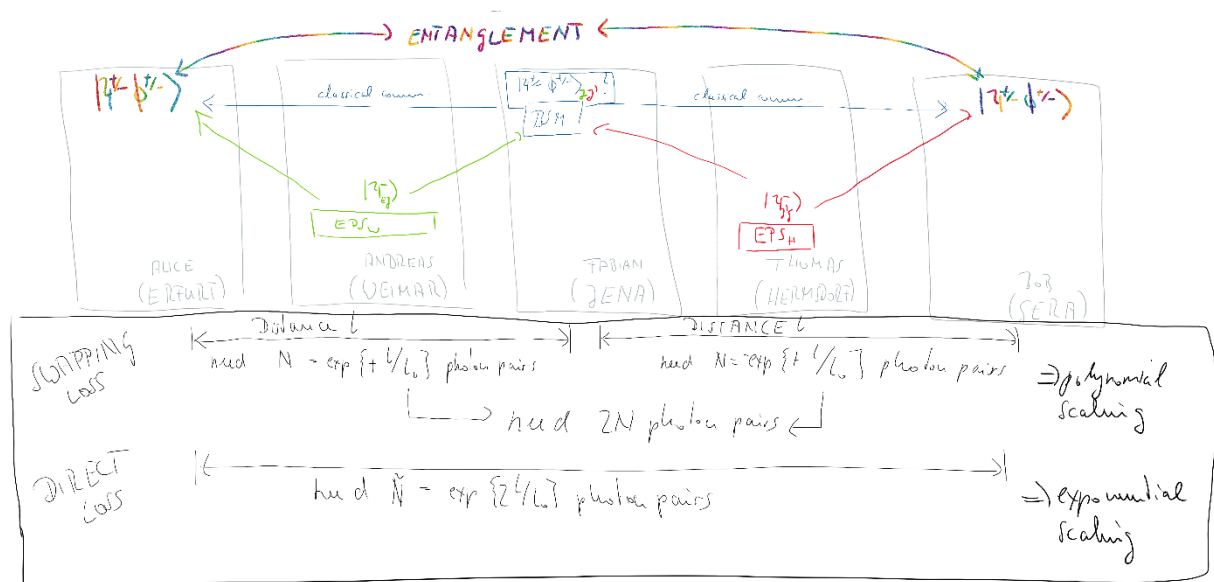 ENTANGLEMENT
|Ψ+/- ϕ+/-⟩
classical comm.
|Ψ+/- ϕ+/-⟩ ?
classical comm.
|Ψ+/- ϕ+/-⟩
BSM
|Ψ-⟩
EPS_W
|Ψ-⟩
EPS_H
ALICE
(ERFURT)
ANDREAS
(WEIMAR)
FABIAN
(JENA)
THOMAS
(HERMSDORF)
BOB
(GERA)
SWAPPING
LOSS
Distance L
need N = exp{+L/L₀} photon pairs
DISTANCE L
need N = exp{+L/L₀} photon pairs
need 2N photon pairs
⇒ polynomial
scaling
DIRECT
LOSS
need Ñ = exp{2L/L₀} photon pairs
⇒ exponential
scaling